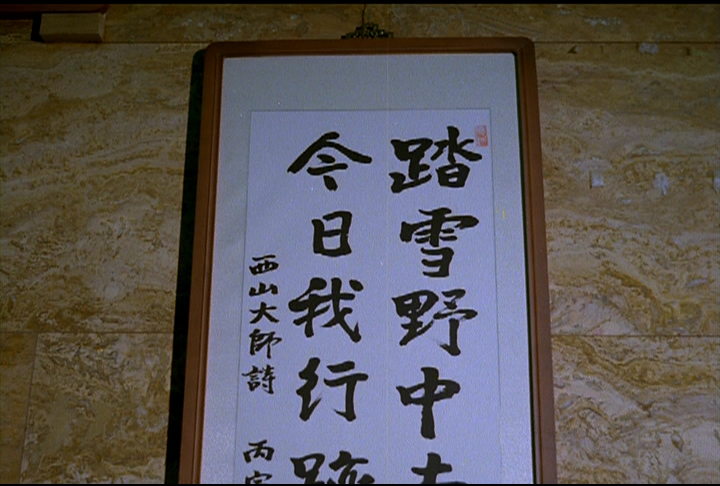 踏雪野中去
今日我行跡
西山大師詩 丙